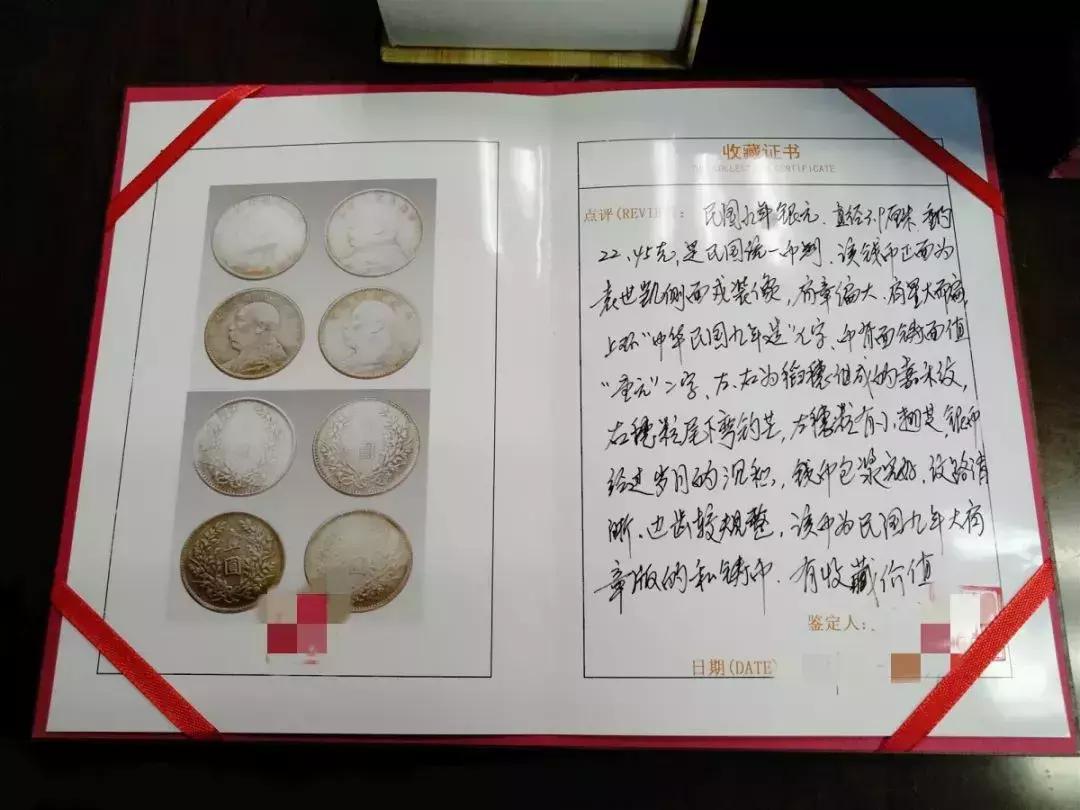 收藏证书
THE COLLECTION CERTIFICATE
点评(REVIEW): 民国九年银元、直径3.9厘米、重约
22.45元,是民国统一币制、该钱币正面为
袁世凯侧面戎装像,肩章偏大、肩星大而扁,
上环"中华民国九年造"七字、币背面铸面值
"壹元"二字、左、右为稻穗组成的嘉禾纹,
右穗粒尾下弯钩芒,左穗粒有小翘芒,银币
经过岁月的沉积,钱币包浆完好、纹路清
晰、边齿较规整,该币为民国九年大肩
章版的私铸币、有收藏价值
鉴定人:
日期(DATE)
一圓